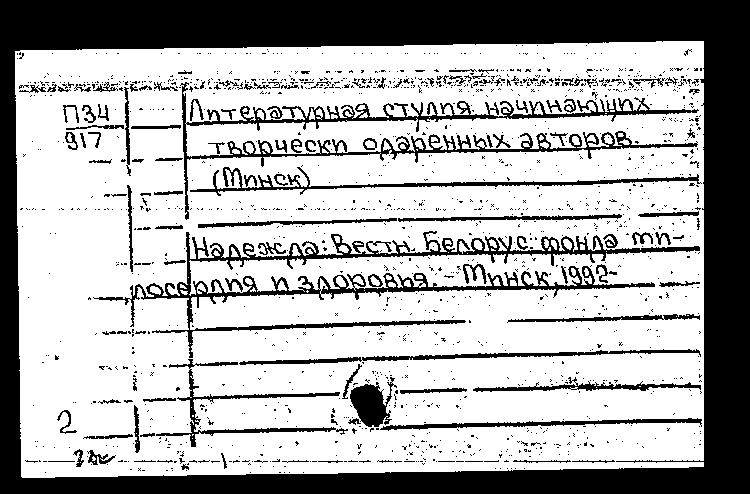 П34
917
Литературная студия начинающих
творчески одаренных авторов.
(Минск)
Надежда: Вестн. Белорус. фонда ми-
лосердия и здоровья. - Минск, 1992-
2